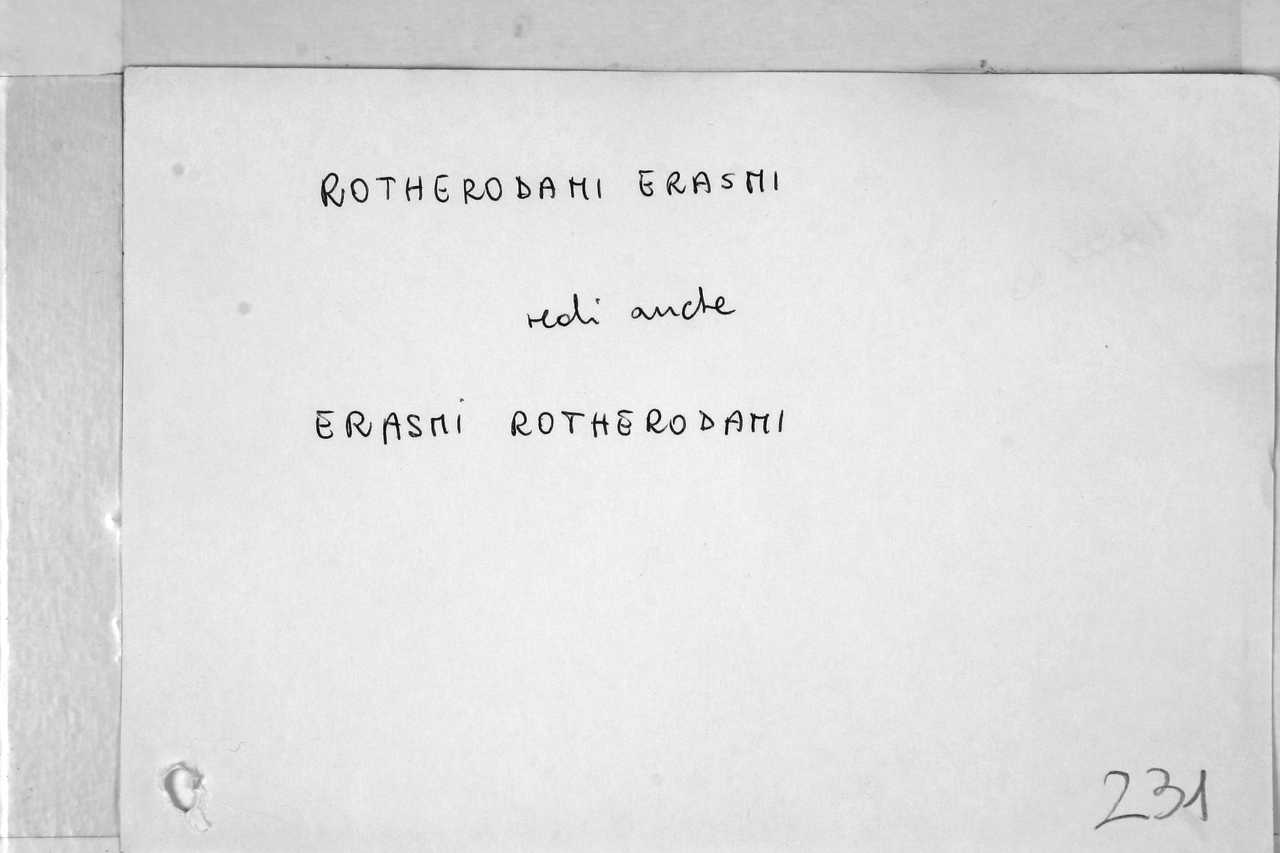 ROTHERODAMI ERASMI
vedi anche
ERASMI ROTHERODAMI
231